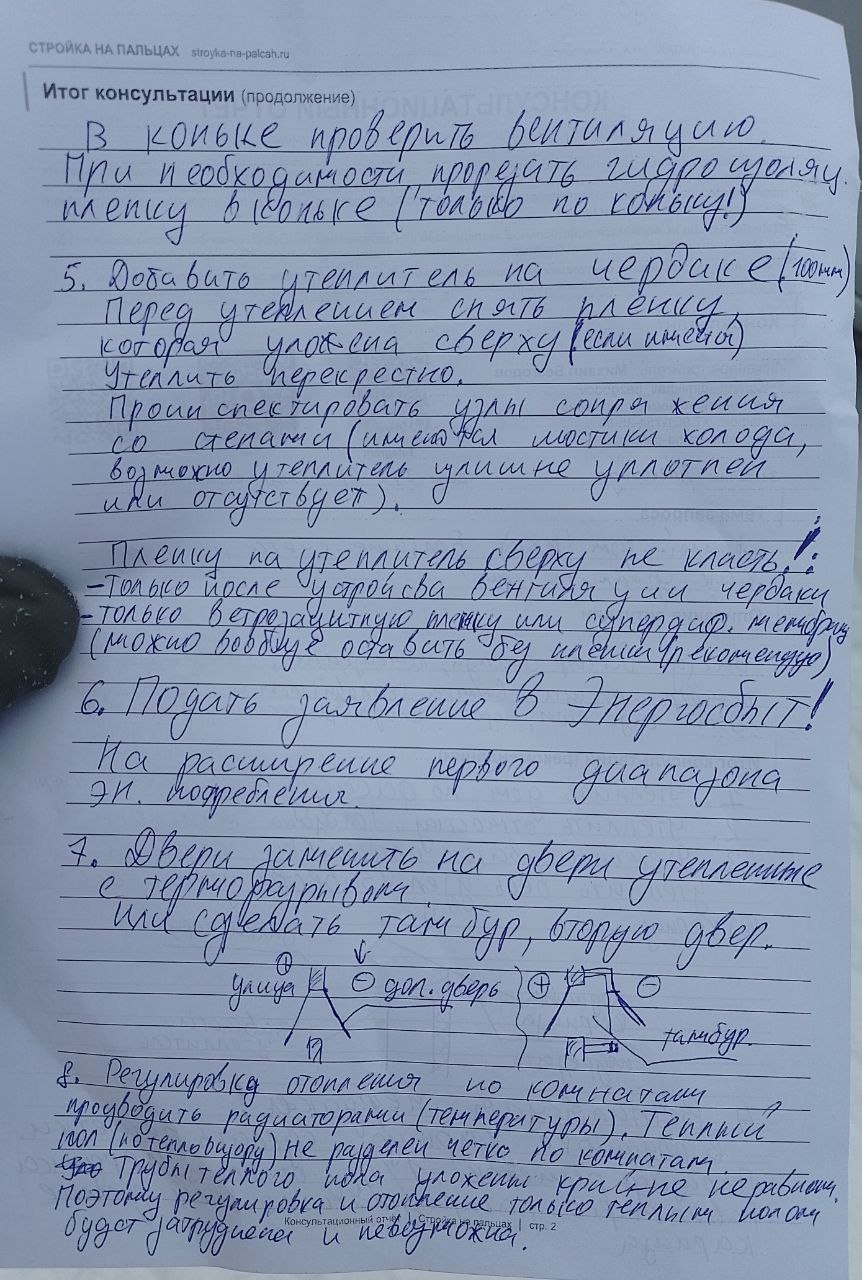 СТРОЙКА НА ПАЛЬЦАХ stroyka-na-palcah.ru
Итог консультации (продолжение)
В коньке проверить вентиляцию.
При необходимости прорезать гидроизоляц.
пленку в коньке (только по коньку!)
5. Добавить утеплитель на чердаке (100мм)
Перед утеплением снять пленку,
которая уложена сверху (если имеется)
Утеплить перекрестно.
Проинспектировать узлы сопряжения
со стенами (имеются мостики холода,
возможно утеплитель излишне уплотнен
или отсутствует).
Пленку на утеплитель сверху не класть!:
- Только после устройсва вентиляции чердаки
- только ветрозащитную пленку или супердиф. мембрану
(можно вообще оставить без пленки (рекомендую)
6. Подать заявление в Энергосбыт!
На расширение первого диапазона
эн. потребления.
7. Двери заменить на двери утепленные
с терморазрывом.
Или сделать тамбур, вторую двер.
улица + - доп. дверь + -
тамбур.
8. Регулировку отопления по комнатам
производить радиаторами (температуры). Теплый
пол (по тепловизору) не разделен четко по комнатам.
Трубы теплого пола уложены крайне неравном.
Поэтому регулировка и отопление только теплым полом
будет затруднена и невозможна.
Консультационный отчет | Стройка на пальцах | стр. 2